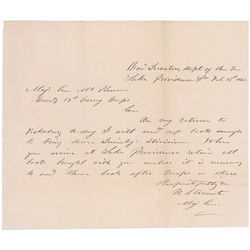 Head Quarters Dept of the Ten
Lake Providence La Feb. 15th 1863
Maj. Gen. McPherson
Comdg 17th Army Corps
Gen
On my return to
Vicksburg to day I will send up boats enough
to bring down Division. When
you arrive at Lake Providence retain all
boats brought with you unless it is necessary
to send them back after troops or stores
Respectfully
U. S. Grant
Maj. Gen